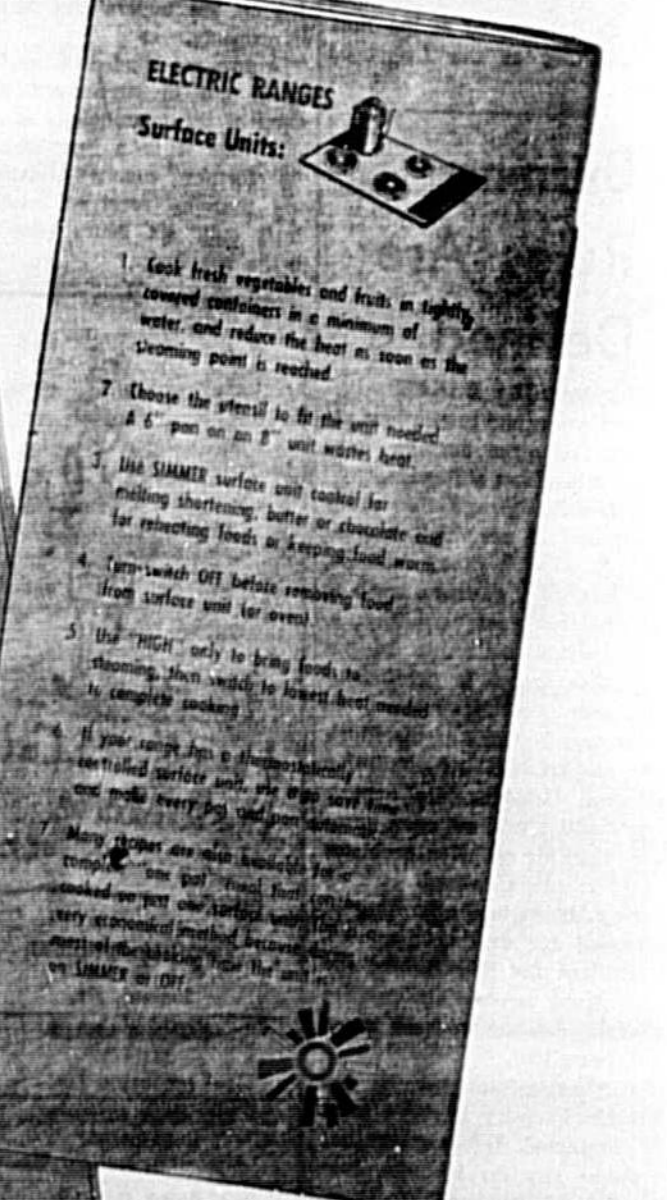 ELECTRIC RANGES
Surface Units:
1. Cook fresh vegetables and fruits in tightly
covered containers in a minimum of
water, and reduce the heat as soon as the
steaming point is reached.
2. Choose the utensil to fit the unit needed.
A 6" pan on an 8" unit wastes heat.
3. Use SIMMER surface unit control for
melting shortening, butter or chocolate and
for reheating foods or keeping food warm.
4. Turn switch OFF before removing food
from surface unit (or oven)
5. Use "HIGH" only to bring foods to
steaming, then switch to lowest heat needed
to complete cooking.
6. If your range has a thermostatically
controlled surface unit, use it to save time
and make every pot and pan automatic
7. Many recipes are also available for a
complete "one pot" meal that can be
cooked on just one surface unit. This is a
very economical method because
most of the cooking, the unit is
on SIMMER or OFF.